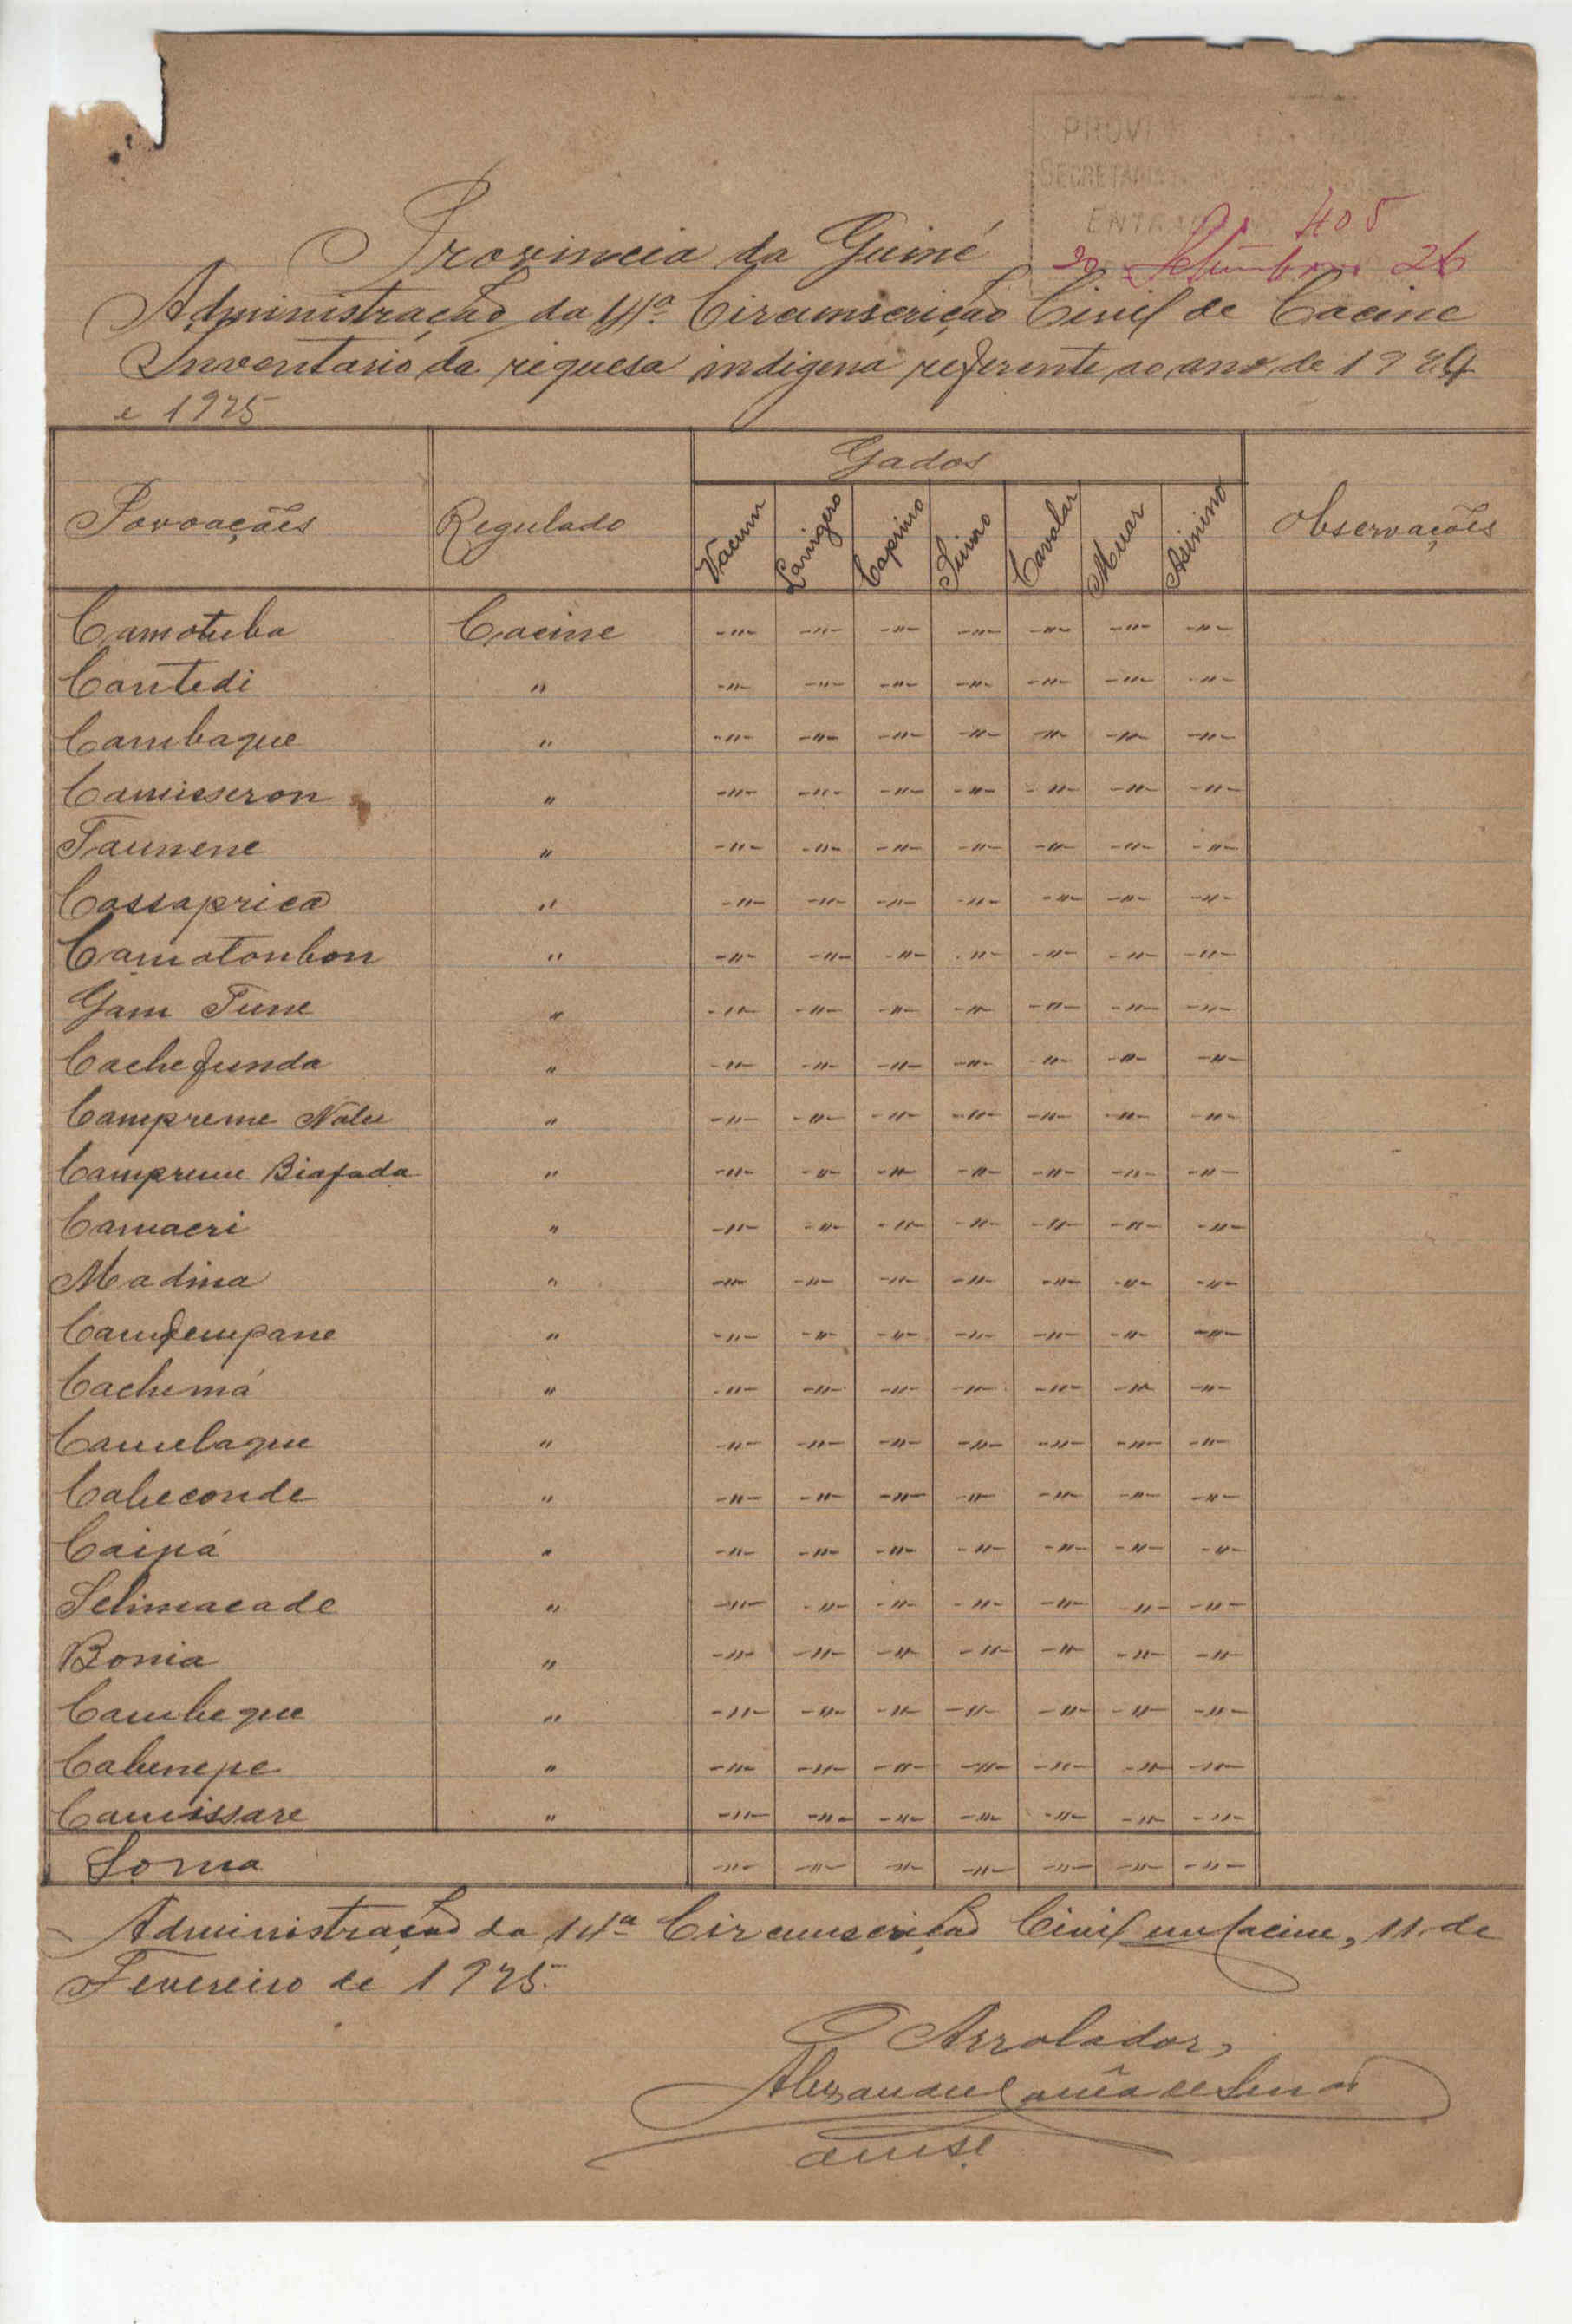 PROVI
SECRETARIA
ENTRA
Nº 405
20 Setembro 26
Provincia da Guiné
Administração da 14ª Circumscrição Civil de Cacine
Inventario da riquesa indigena referente ao ano de 1924
e 1925
Povoações Regulado Gados Observações
Vacum Lanigero Caprino Suino Cavalar Muar Asinino
Camotuba Cacine -"- -"- -"- -"- -"- -"- -"-
Cantedi " -"- -"- -"- -"- -"- -"- -"-
Cambaque " -"- -"- -"- -"- -"- -"- -"-
Camisseron " -"- -"- -"- -"- -"- -"- -"-
Taunene " -"- -"- -"- -"- -"- -"- -"-
Cassaprica " -"- -"- -"- -"- -"- -"- -"-
Camotonbon " -"- -"- -"- -"- -"- -"- -"-
Gam Tune " -"- -"- -"- -"- -"- -"- -"-
Cachefunda " -"- -"- -"- -"- -"- -"- -"-
Campreme Nalu " -"- -"- -"- -"- -"- -"- -"-
Campreme Biafada " -"- -"- -"- -"- -"- -"- -"-
Camacri " -"- -"- -"- -"- -"- -"- -"-
Madina " -"- -"- -"- -"- -"- -"- -"-
Camfempane " -"- -"- -"- -"- -"- -"- -"-
Cachimá " -"- -"- -"- -"- -"- -"- -"-
Camelaque " -"- -"- -"- -"- -"- -"- -"-
Cabeconde " -"- -"- -"- -"- -"- -"- -"-
Caipá " -"- -"- -"- -"- -"- -"- -"-
Selimacade " -"- -"- -"- -"- -"- -"- -"-
Bonia " -"- -"- -"- -"- -"- -"- -"-
Cambeque " -"- -"- -"- -"- -"- -"- -"-
Cabenepe " -"- -"- -"- -"- -"- -"- -"-
Camissare " -"- -"- -"- -"- -"- -"- -"-
Soma -"- -"- -"- -"- -"- -"- -"-
Administração da 14ª Circumscrição Civil em Cacine, 11 de
Fevereiro de 1925.
O Arrolador,